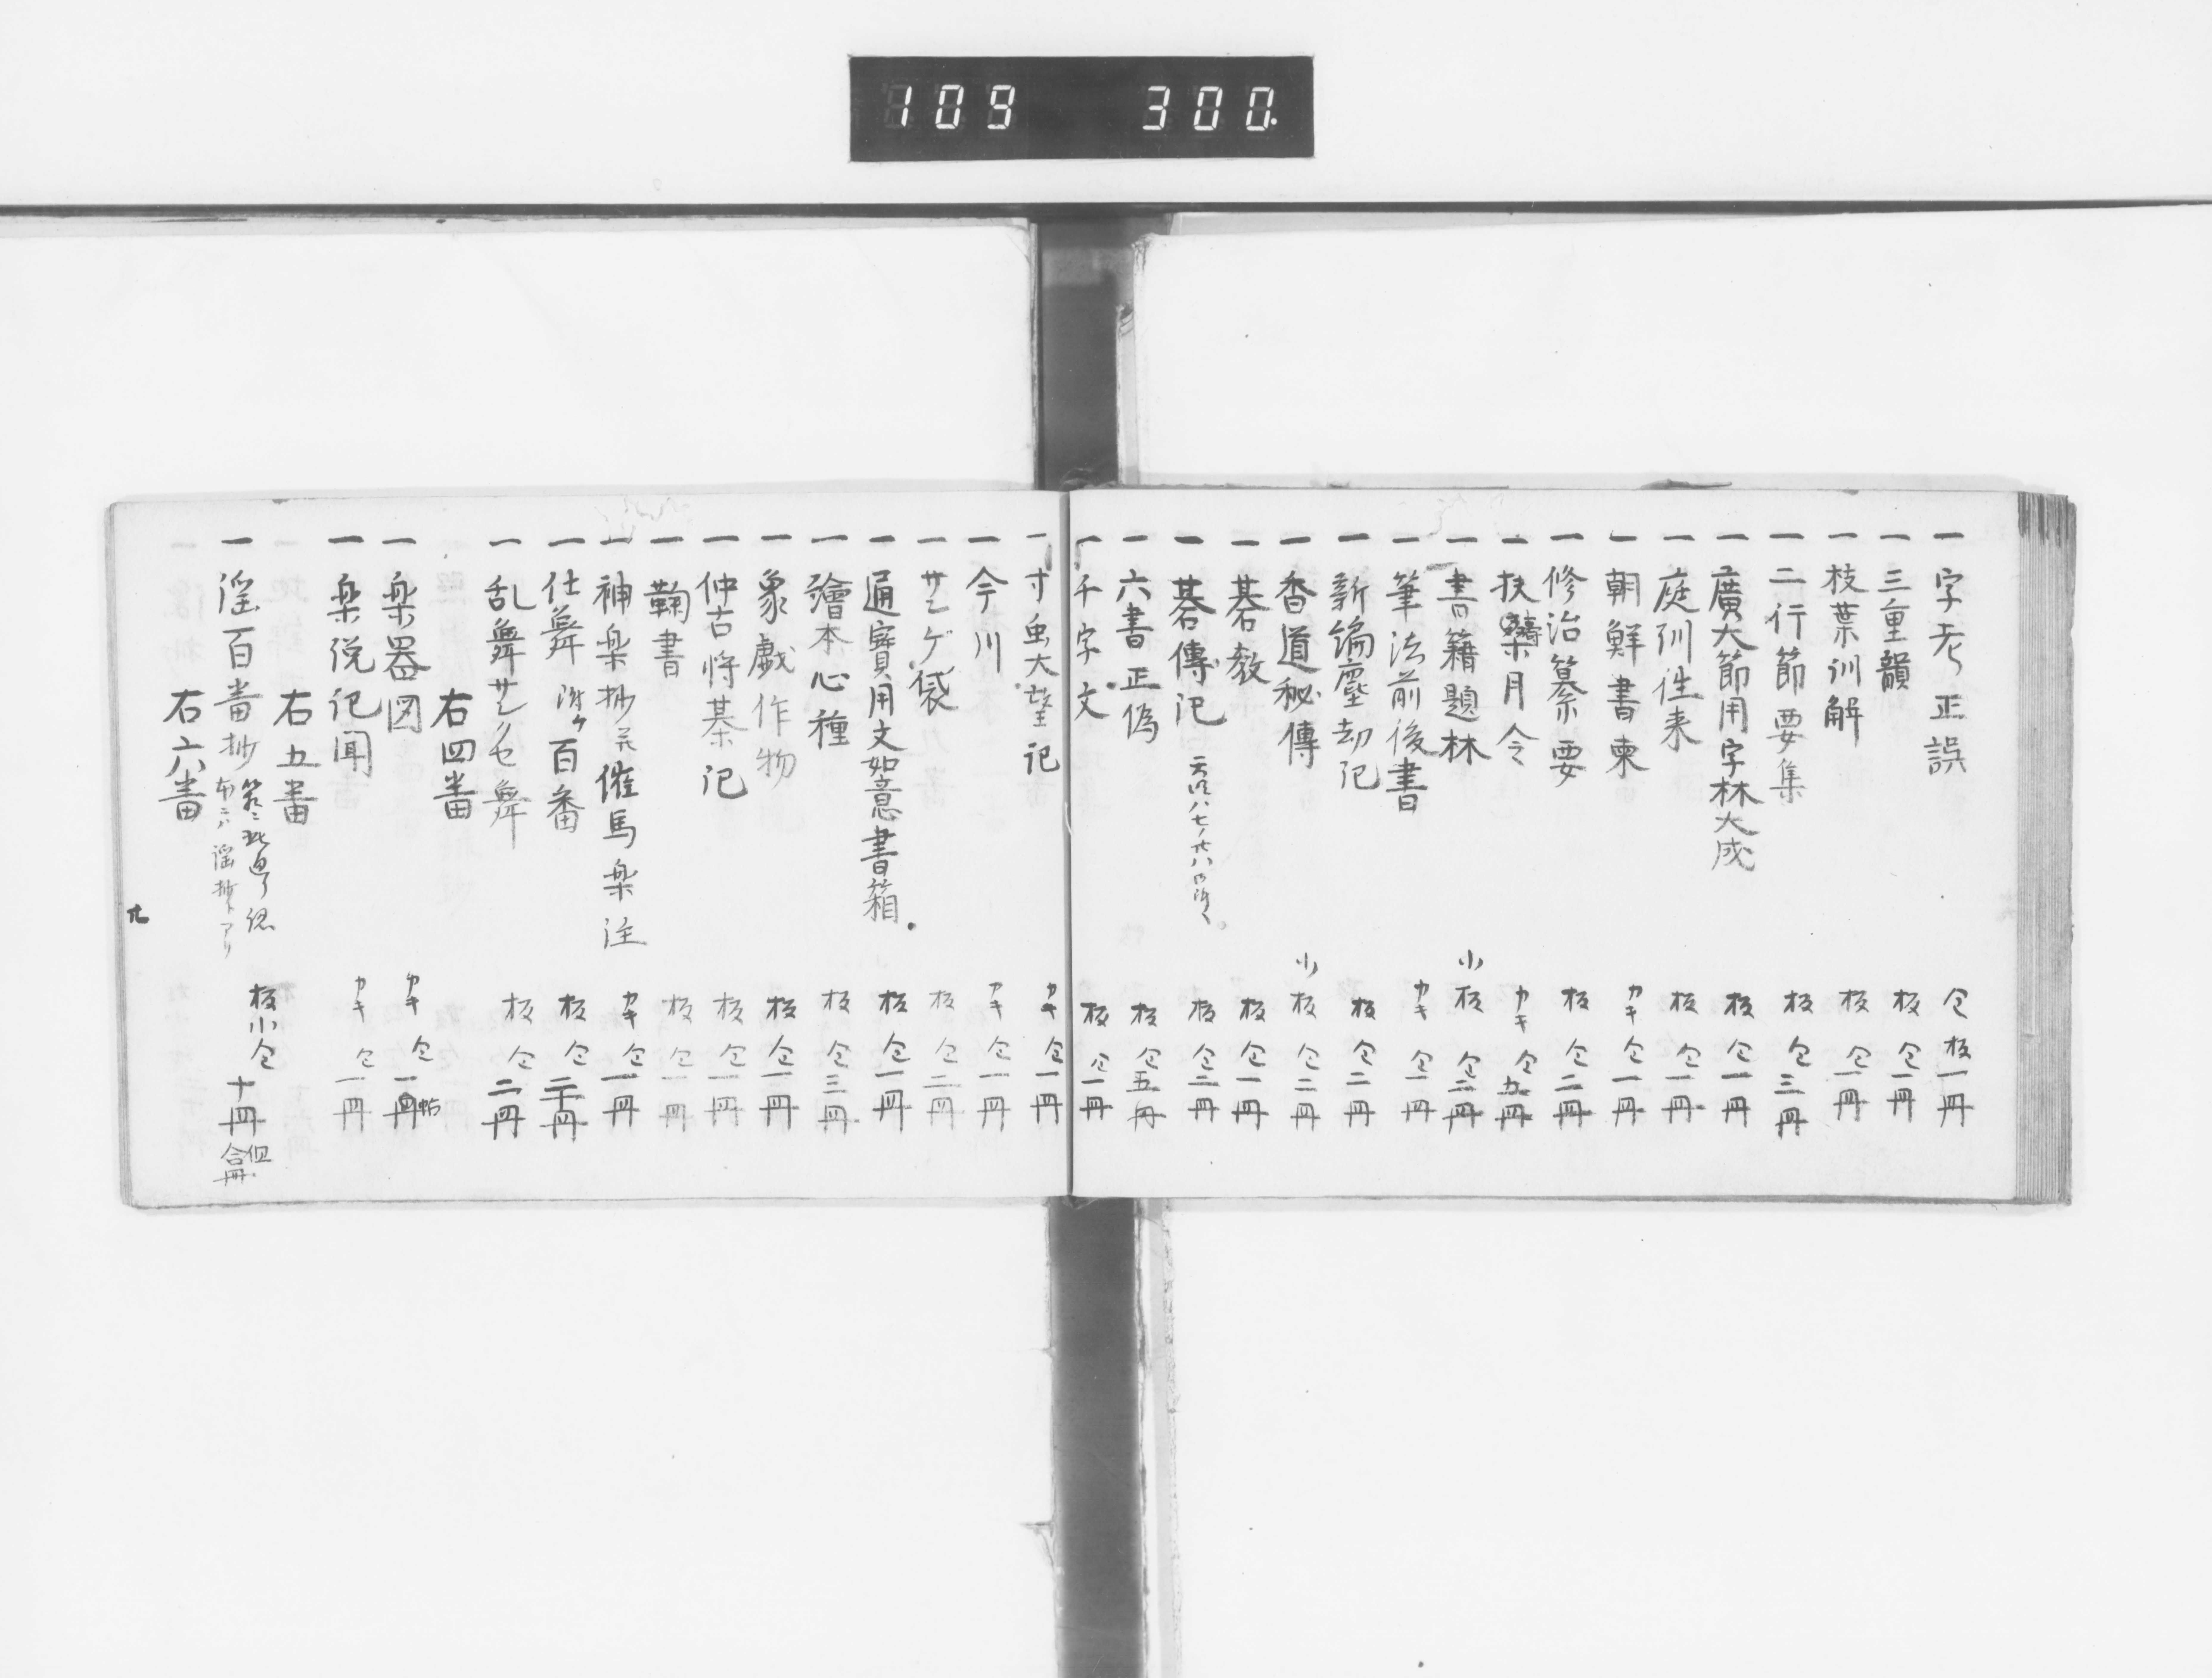 109 300.
一 字考正誤 仝 板一冊
一 三重韻 板 仝一冊
一 枝葉訓解 板 仝一冊
一 二行節要集 板 仝三冊
一 廣大節用字林大成 板 仝一冊
一 庭訓往来 板 仝一冊
一 朝鮮書柬 カキ 仝一冊
一 修治纂要 板 仝二冊
一 扶桑月令 カキ 仝九冊
一 書籍題林 小板 仝二冊
一 筆法前後書 カキ 仝一冊
一 新編塵劫記 板 仝二冊
一 香道秘傳 小板 仝二冊
一 碁教 板 仝一冊
一 碁傳記 板 仝二冊
一 六書正偽 板 仝五冊
一 千字文 板 仝一冊
一 寸虫大望記 カキ 仝一冊
一 今川 カキ 仝一冊
一 サンゲ袋 板 仝二冊
一 通寳用文如意書箱 板 仝一冊
一 繪本心種 板 仝三冊
一 象戯作物 板 仝一冊
一 仲古将棊記 板 仝一冊
一 鞠書 板 仝一冊
一 神楽抄并催馬楽注 カキ 仝一冊
一 仕舞附百番 板 仝二冊
一 乱舞サン色舞 板 仝二冊
右四番
一 楽器図 カキ 仝一帖
一 楽説記聞 カキ 仝一冊
右五番
一 謡百番抄 板小仝 十冊 但合冊
右六番